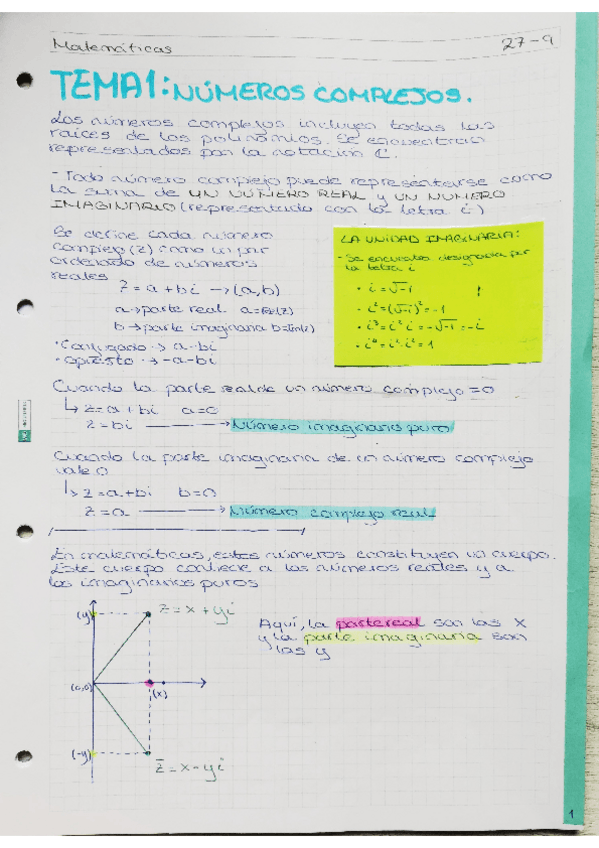 Matemáticas
27-9
TEMA 1: NÚMEROS COMPLEJOS.
Los números complejos incluyen todas las
raíces de los polinomios. Se encuentran
representados por la notación C.
- Todo número complejo puede representarse como
la suma de UN NÚMERO REAL y UN NÚMERO
IMAGINARIO (representado con la letra i)
Se define cada número
complejo (z) como un par
ordenado de números
reales
z = a + bi → (a, b)
a → parte real a=Re(z)
b → parte imaginaria b=Im(z)
· Conjugado → a-bi
· Opuesto → -a-bi
LA UNIDAD IMAGINARIA:
- Se encuentra designada por
la letra i
· i = √-1
· i² = (√-1)² = -1
· i³ = i² i = -√-1 = -i
· i⁴ = i² · i² = 1
Cuando la parte real de un número complejo = 0
↳ z = a + bi a = 0
z = bi → Número imaginario puro
Cuando la parte imaginaria de un número complejo
vale 0
↳ z = a + bi b = 0
z = a → Número complejo real
En matemáticas, estos números constituyen un cuerpo.
Este cuerpo contiene a los números reales y a
los imaginarios puros
(y)
z = x + yi
(0,0)
(x)
(-y)
z̄ = x - yi
Aquí, la parte real son las x
y la parte imaginaria son
las y
1